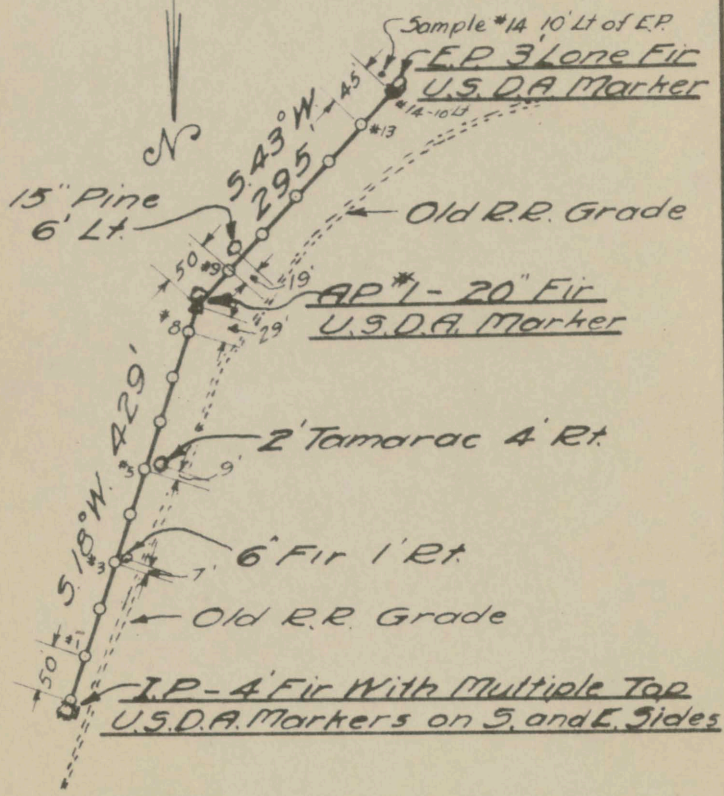 Sample #14 10' Lt of E.P.
E.P. 3' Lone Fir
U.S.D.A. Marker
45'
#14-10 Lt
#13
N
S.43°W.
295'
15" Pine
6' Lt.
Old R.R. Grade
50'
#9
19'
A.P. #1 - 20" Fir
U.S.D.A. Marker
29'
#8
S.18°W. 429'
2' Tamarac 4' Rt.
#5
9'
6" Fir 1' Rt.
#3
7'
Old R.R. Grade
#1
50'
I.P. - 4' Fir With Multiple Top
U.S.D.A. Markers on S. and E. Sides